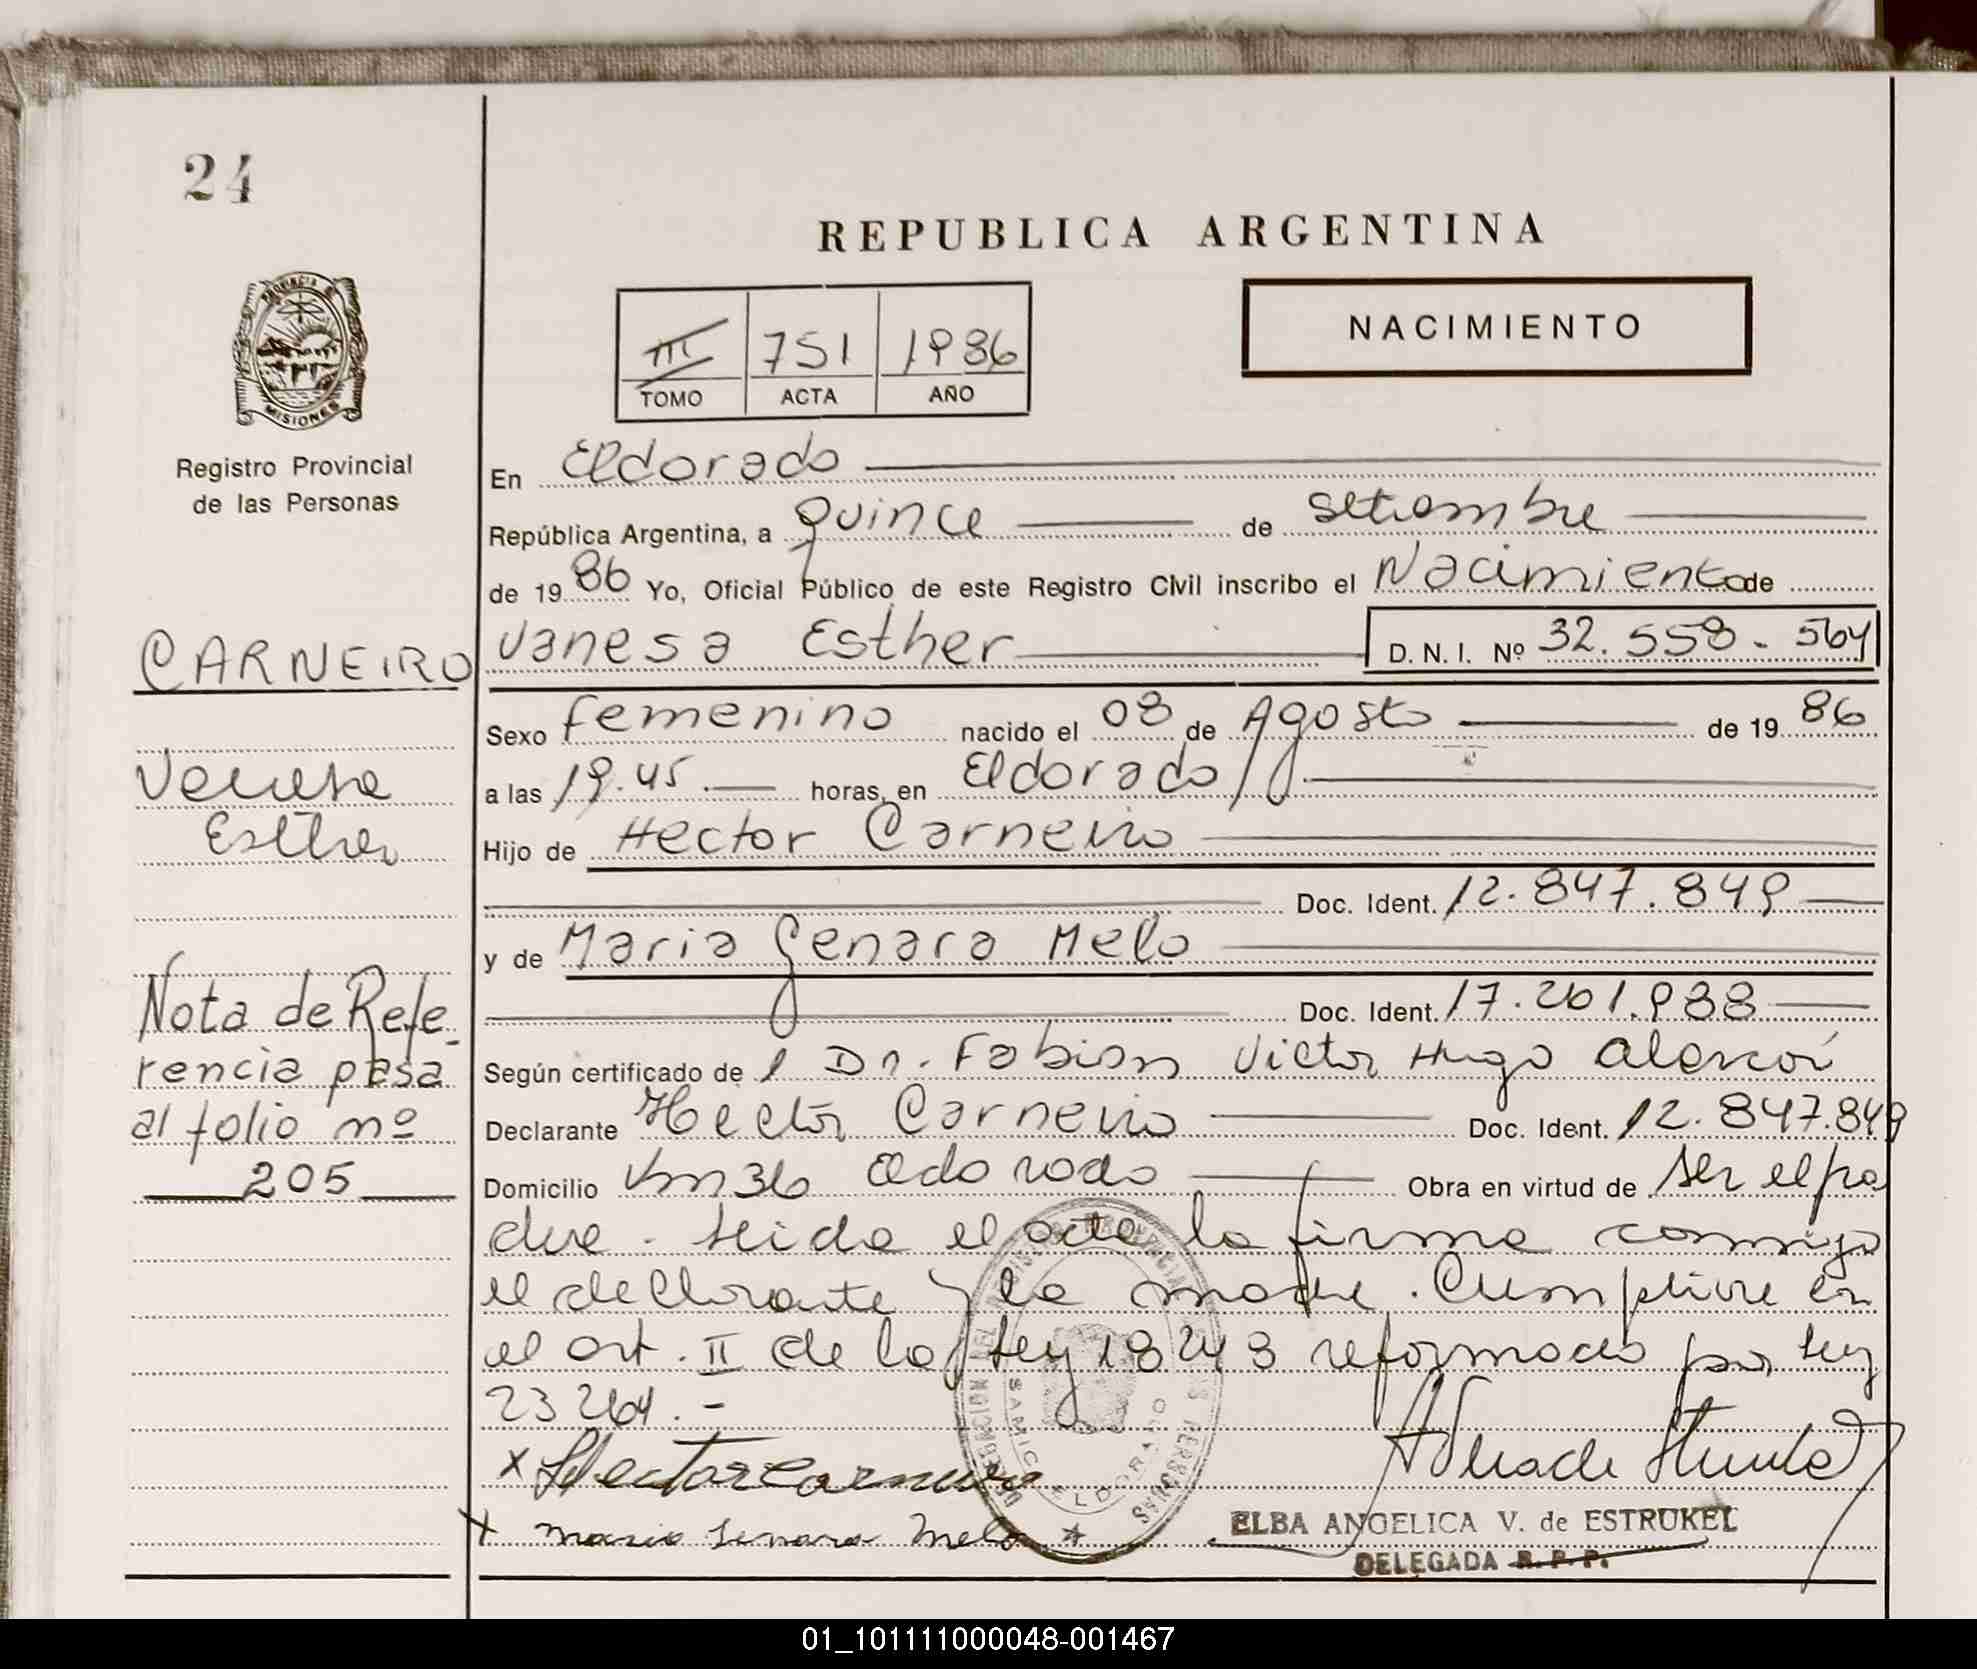 24
REPUBLICA ARGENTINA
PROVINCIA DE
MISIONES
Registro Provincial
de las Personas
III 751 1986
TOMO ACTA AÑO
NACIMIENTO
En Eldorado
República Argentina, a Quince de setiembre
de 1986 Yo, Oficial Público de este Registro Civil inscribo el Nacimiento de
CARNEIRO
Vanesa Esther D.N.I. Nº 32.558.564
Sexo femenino nacido el 08 de Agosto de 1986
Vanesa
a las 19.45 horas, en Eldorado
Esther
Hijo de Hector Carneiro
Doc. Ident. 12.847.849
y de Maria Genara Melo
Doc. Ident. 17.261.988
Nota de Refe-
rencia pasa
al folio nº
205
Según certificado de l Dr. Fabian Victor Hugo
Declarante Hector Carneiro Doc. Ident. 12.847.849
Domicilio Km 36 Eldorado Obra en virtud de ser el pa
dre. Leida el acta la firma conmigo
el declarante y la madre. Cumplire en
el art. II de la Ley 18248 reformado por Ley
23264.-
x Hector Carneiro
x Maria Genara Melo
ELDORADO
ELBA ANGELICA V. de ESTRUKEL
DELEGADA R.P.P.
01_101111000048-001467